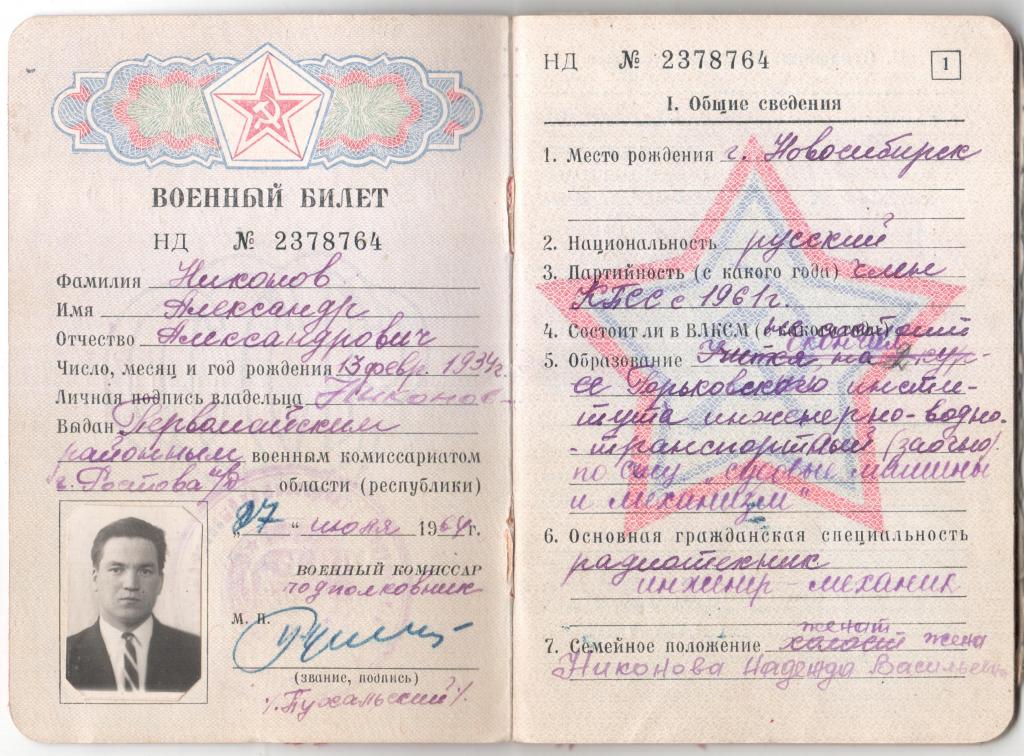 ВОЕННЫЙ БИЛЕТ
НД № 2378764
Фамилия Никонов
Имя Александр
Отчество Александрович
Число, месяц и год рождения 13 февр. 1934г.
Личная подпись владельца Никонов
Выдан Первомайским
районным военным комиссариатом
г. Ростова н/Д области (республики)
„27 “ июля 1964г.
ВОЕННЫЙ КОМИССАР
подполковник
М. П.
(звание, подпись)
/.Пухальский./.
НД № 2378764
1
I. Общие сведения
1. Место рождения г. Новосибирск
2. Национальность русский
3. Партийность (с какого года) член
КПСС с 1961г.
4. Состоит ли в ВЛКСМ (с какого года)
5. Образование окончил 2
Горьковского инсти-
тута инженерно-водно-
-транспортный (заочно)
по спец. „судовые машины
и механизм“
6. Основная гражданская специальность
радиотехник
инжинир-механик
7. Семейное положение женат холост жена
Никонова Надежда Васильевна